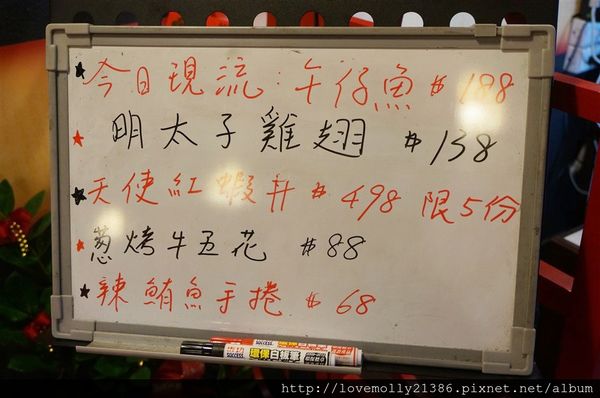 ★今日現流：午仔魚 #188
★明太子雞翅 #138
★天使紅蝦丼 #498 限5份
★蔥烤牛五花 #88
★辣鮪魚手捲 #68
SUCCESS 環保白板筆
http://lovemolly21386.pixnet.net/album